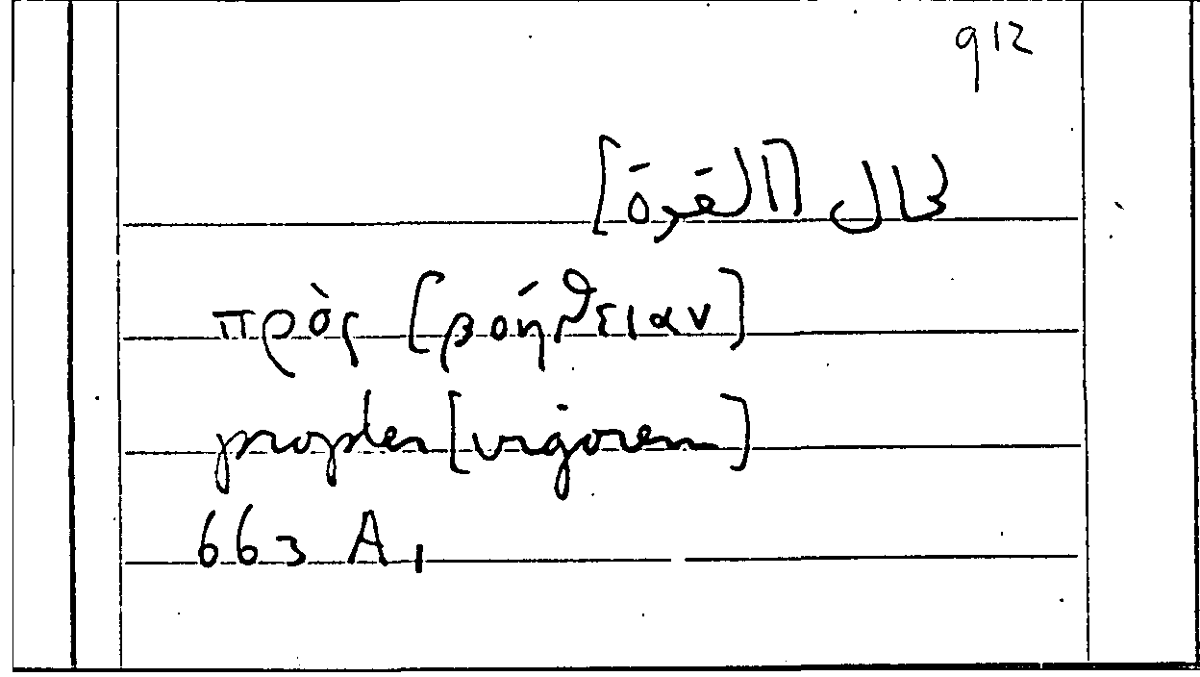 912
لحال [القوة]
πρὸς [βοήθειαν]
propter [vigorem]
663 A 1